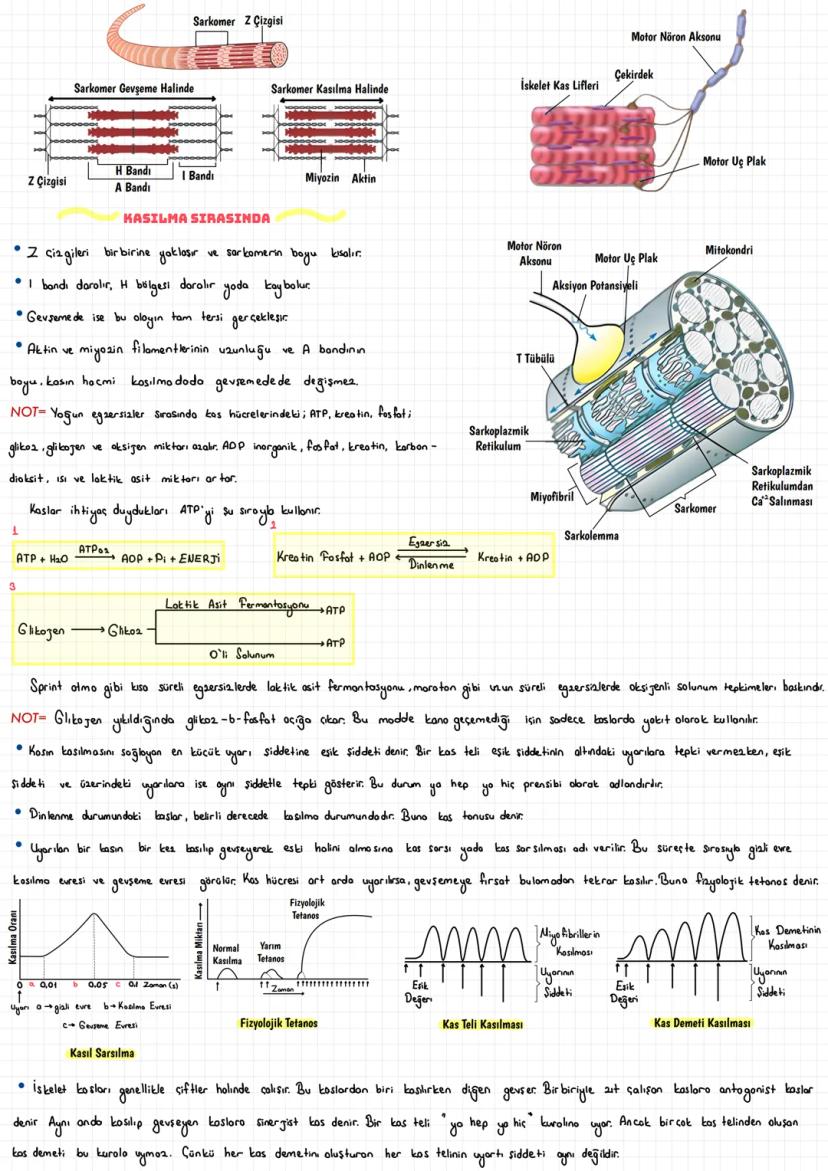 Sarkomer Z Çizgisi
Sarkomer Gevşeme Halinde
Sarkomer Kasılma Halinde
Z Çizgisi
H Bandı
A Bandı
I Bandı
Miyozin Aktin
Motor Nöron Aksonu
İskelet Kas Lifleri
Çekirdek
Motor Uç Plak
KASILMA SIRASINDA
• Z çizgileri birbirine yaklaşır ve sarkomerin boyu kısalır.
• I bandı daralır, H bölgesi daralır yada kaybolur.
• Gevşemede ise bu olayın tam tersi gerçekleşir.
• Aktin ve miyozin filamentlerinin uzunluğu ve A bandının
boyu, kasın hacmi kasılmadada gevşemedede değişmez.
NOT= Yoğun egzersizler sırasında kas hücrelerindeki; ATP, kreatin, fosfat;
glikoz, glikojen ve oksijen miktarı azalır. ADP inorganik, fosfat, kreatin, karbon-
dioksit, ısı ve laktik asit miktarı artar.
Kaslar ihtiyaç duydukları ATP'yi şu sırayla kullanır.
Motor Nöron
Aksonu
Motor Uç Plak
Mitokondri
Aksiyon Potansiyeli
T Tübülü
Sarkoplazmik
Retikulum
Miyofibril
Sarkolemma
Sarkomer
Sarkoplazmik
Retikulumdan
Ca⁺² Salınması
1
ATP + H2O ATPaz → ADP + Pi + ENERJİ
2
Kreatin Fosfat + ADP Egzersiz ⇌ Dinlenme Kreatin + ADP
3
Glikojen → Glikoz
Laktik Asit Fermantasyonu → ATP
O'li Solunum → ATP
Sprint atma gibi kısa süreli egzersizlerde laktik asit fermantasyonu, maraton gibi uzun süreli egzersizlerde oksijenli solunum tepkimeleri baskındır.
NOT= Glikojen yıkıldığında glikoz-b-fosfat açığa çıkar. Bu madde kana geçemediği için sadece kaslarda yakıt olarak kullanılır.
• Kasın kasılmasını sağlayan en küçük uyarı şiddetine eşik şiddeti denir. Bir kas teli eşik şiddetinin altındaki uyarılara tepki vermezken, eşik
şiddeti ve üzerindeki uyarılara ise aynı şiddetle tepki gösterir. Bu durum ya hep ya hiç prensibi olarak adlandırılır.
• Dinlenme durumundaki kaslar, belirli derecede kasılma durumundadır. Buna kas tonusu denir.
• Uyarılan bir kasın bir kez kasılıp gevşeyerek eski halini almasına kas sarsı yada kas sarsılması adı verilir. Bu süreçte sırasıyla gizli evre
kasılma evresi ve gevşeme evresi görülür. Kas hücresi art arda uyarılırsa, gevşemeye fırsat bulamadan tekrar kasılır. Buna fizyolojik tetanos denir.
Kasılma Oranı
0 a 0,01 b 0.05 c 0.1 Zaman (s)
Uyarı a → gizli evre b → Kasılma Evresi
c → Gevşeme Evresi
Kasıl Sarsılma
Kasılma Miktarı
Normal
Kasılma
Yarım
Tetanos
Fizyolojik
Tetanos
Zaman
Fizyolojik Tetanos
Miyofibrillerin
Kasılması
Uyarının
Şiddeti
Eşik
Değeri
Kas Teli Kasılması
Kas Demetinin
Kasılması
Uyarının
Şiddeti
Eşik
Değeri
Kas Demeti Kasılması
• İskelet kasları genellikle çiftler halinde çalışır. Bu kaslardan biri kasılırken diğen gevşer. Birbiriyle zıt çalışan kaslara antagonist kaslar
denir Aynı anda kasılıp gevşeyen kaslara sinerjist kas denir. Bir kas teli "ya hep ya hiç" kuralına uyar. Ancak birçok kas telinden oluşan
kas demeti bu kurala uymaz. Çünkü her kas demetini oluşturan her kas telinin uyartı şiddeti aynı değildir.